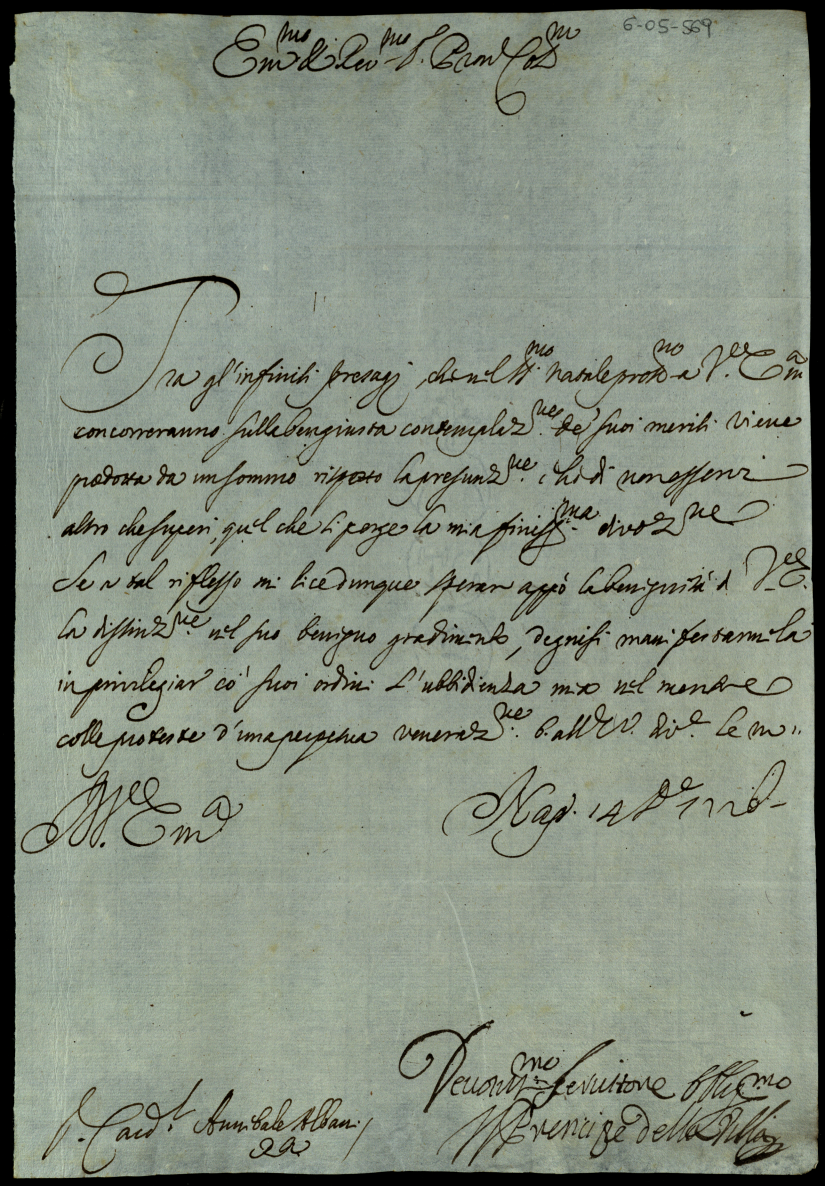 6-05-569
Em.mo e Rev.mo S.r Pron Col.mo
Tra gl'infiniti presagi, che nel SS.mo Natale pross.mo a V.ra Em.a
concorreranno sulla ben giusta contemplaz.ne de' suoi meriti viene
prodotta da un sommo rispetto la presunz.ne, che di non esservi
altro che superi, quel che li porge la mia finiss.ma divoz.ne
Se a tal riflesso mi lice dunque sperar appò la benignità di V.ra E.
la distinz.ne nel suo benigno gradimento, degnisi manifestarmela
in privilegiar co' suoi ordini l'ubbidienza mia nel mentre
colle proteste d'una perpetua veneraz.ne
V.ra Em.a
Nap. 14
Devotiss.mo Servitore Obblig.mo
S. Card.l Annibale Albani
Il Prencipe della